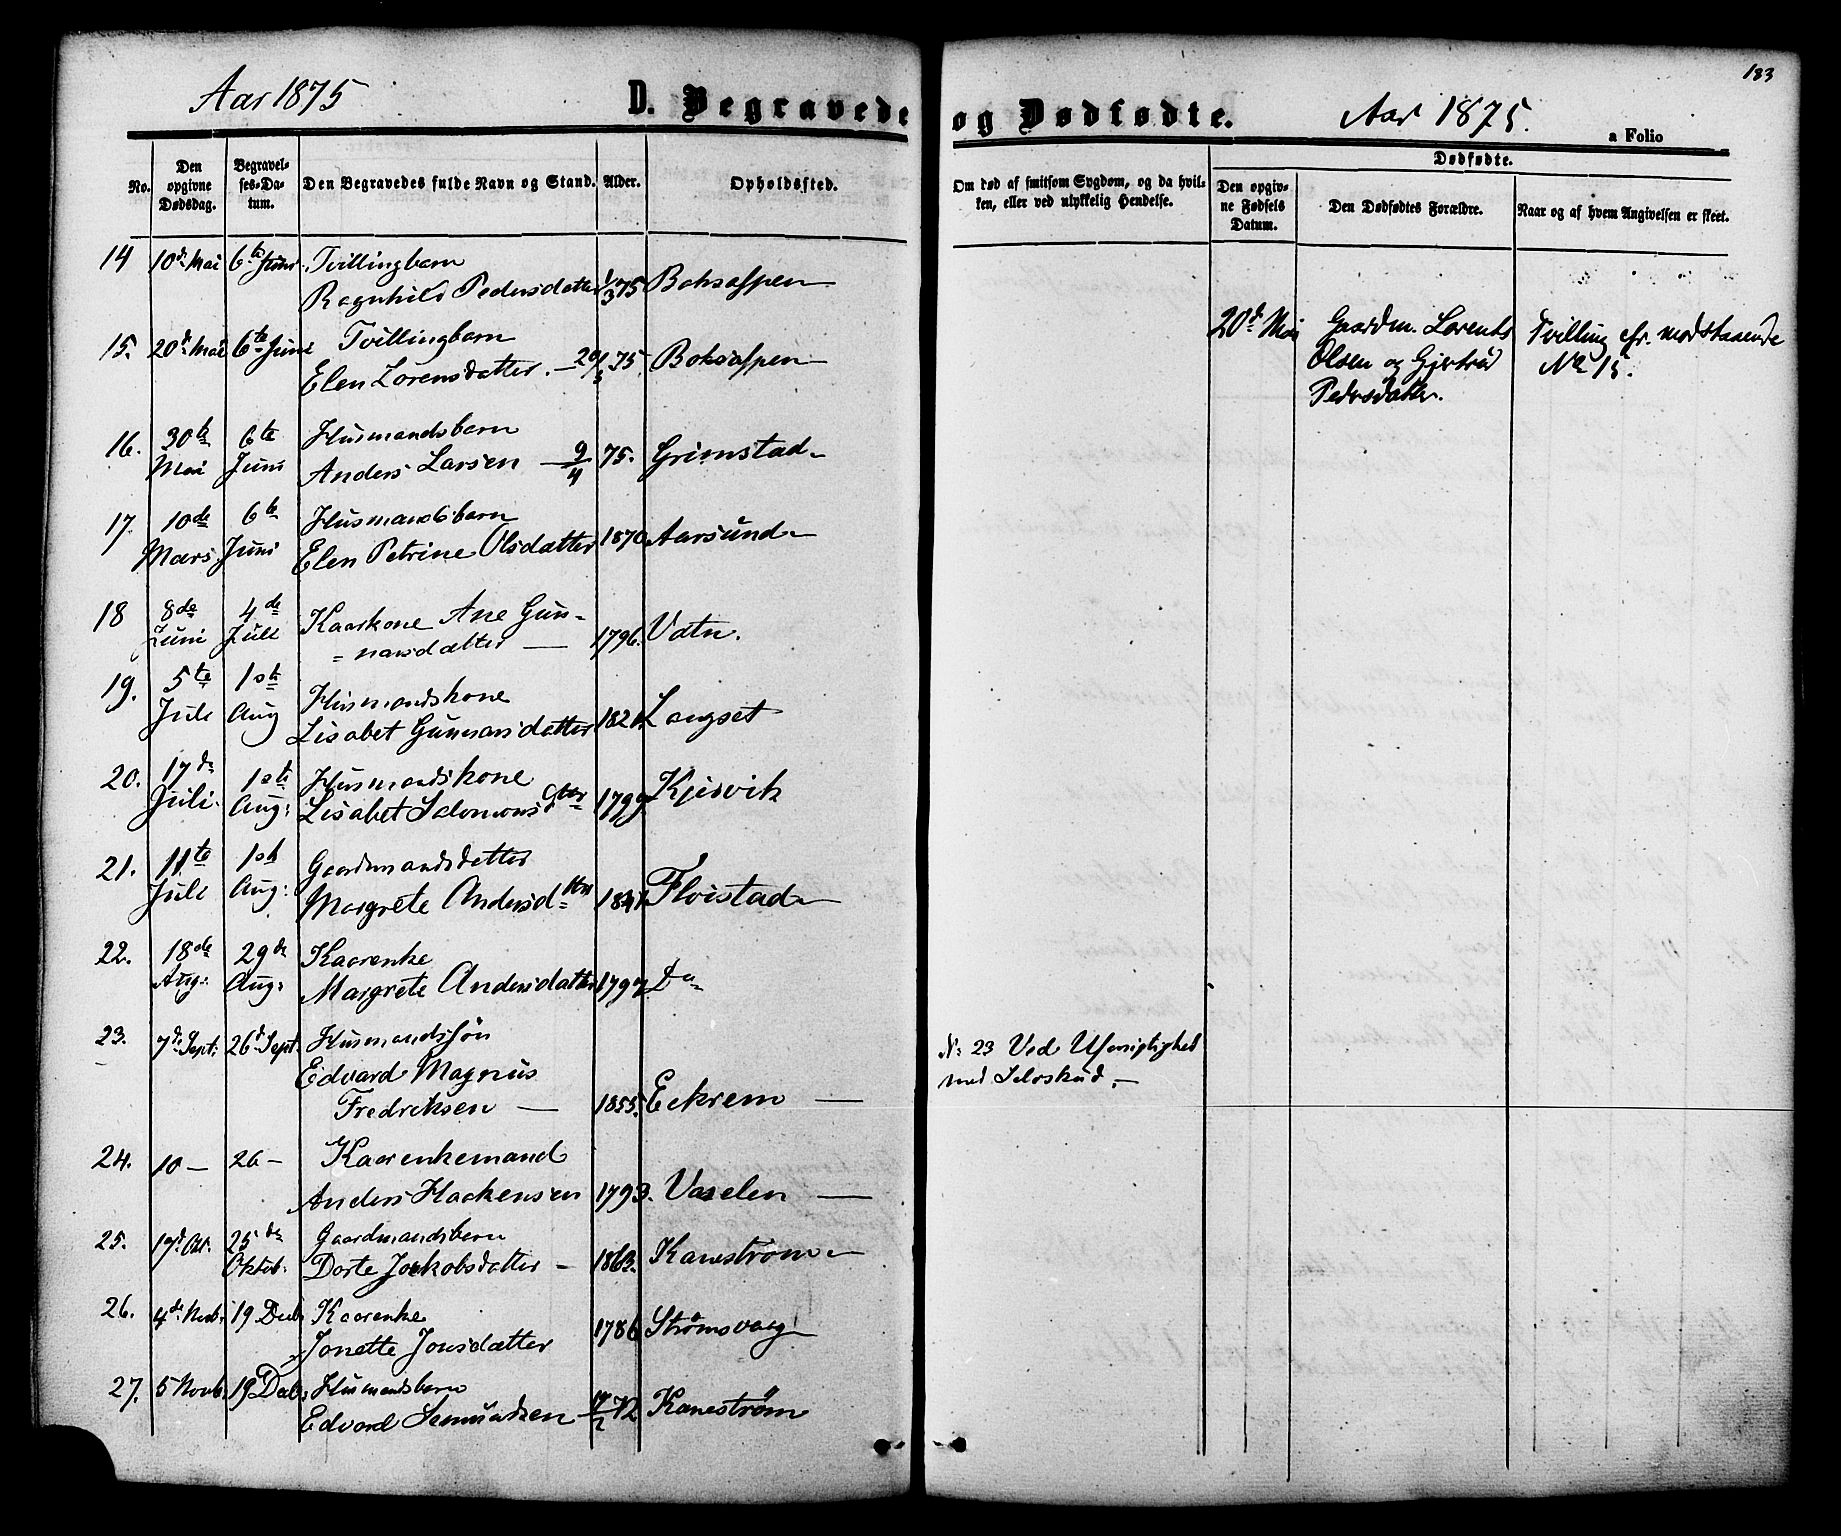 Aar 1875
D. Begravede
No.
Den opgivne Dødsdag.
Begravelses-Datum.
Den Begravedes fulde Navn og Stand.
Alder.
Opholdssted.
14 10de Mai 6te Juni Tvillingbarn
Ragnhild Pedersdatter 1/3 75 Boksaspen
15. 20de Mai 6te Juni Tvillingbarn
Elen Lorensdatter. — 20/5 75. Boksaspen
16. 30te 6te Husmandsbarn
Mai Juni Anders Larsen — 9/4 75. Grimstad
17. 10de 6te Husmandsbarn
Mars Juni Elen Petrine Olsdatter 1870 Aarsund
18 8de 4de Kaarkone Ane Gun-
Juni Juli narsdatter — 1796. Vatn.
19. 5te 1ste Husmandskone
Juli Aug Lisabet Gunnarsdatter Langset
20. 17de 1ste Husmandskone
Juli. Aug: Lisabet Salomonsdtter 1799 Kjersvik
21. 11te 1ste Gaardmandsdatter
Juli Aug: Margrete Andersdtter Floistad
22. 18de 29de Kaarenke
Aug: Aug: Margrete Andersdatter 1797 Do
23. 7de Sept: 26de Sept. Husmandssøn
Edvard Magnus
Fredriksen — 1855. Eekrem —
24. 10 — 26 — Kaarenkemand
Anders Haakensen 1793. Vaselen —
25. 17de Okt. 25de Gaardmandsbarn
Oktob. Dorte Jaakobsdatter — 1863. Kanestrøm
26. 4de Novb. 19 Decb. Kaarenke
Jonette Jonsdatter 1786 Strømsvaag
27. 5 Novb. 19 Decb. Husmandsbarn
Edvard Semundsen — 72 Kanestrøm
183
og Dødfødte.
Aar 1875.
a Folio
Om død af smitsom Sygdom, og da hvilken, eller ved ulykkelig Hendelse.
Dødfødte.
Den opgivne Fødsels Datum.
Den Dødfødtes Forældre.
Naar og af hvem Angivelsen er skeet.
20de Mai Gaardm. Lorents Tvilling cfr. modstaaende
Olsen og Gjertrud No 15.
Pedersdatter.
No 23 Ved Uforsigtighed
med Selvskud. —